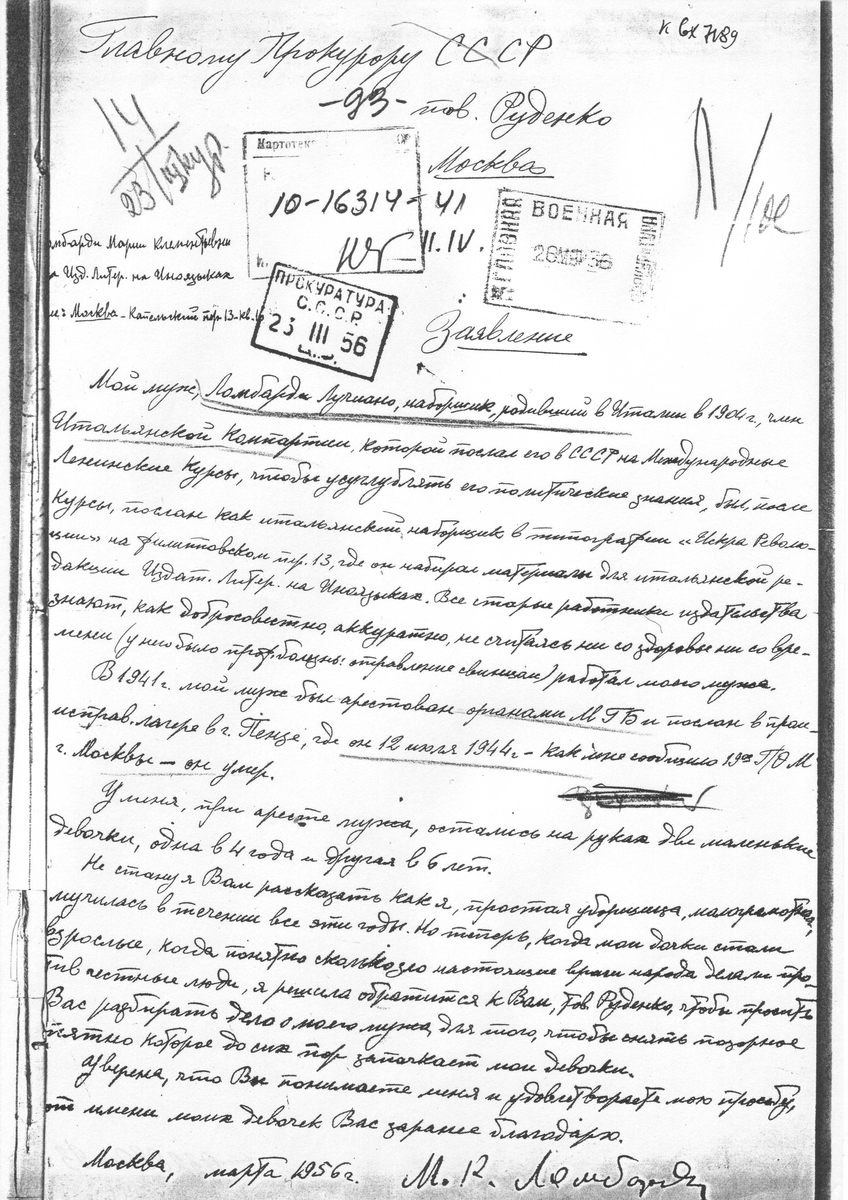 к вх 7189
Главному Прокурору СССР
-93- тов. Руденко
Москва
14
23
Картотека
10-16314-41
11.IV.
ГЛАВНАЯ ВОЕННАЯ
26 МАР 56
ПРОКУРАТУРА
С.С.С.Р.
23 III 56
омбарди Марии Клементьевны
Изд. Литер. на Иноязыках
Москва - Капельский пер 13-кв.
Заявление
Мой муж, Ломбарди Лучиано, наборщик, родивший в Италии в 1904 г., член
Итальянской Компартии, которой послал его в СССР на Международные
Ленинские Курсы, чтобы усуглублять его политические знания, был, после
курсы, послан как итальянский наборщик в типографии «Искра Револю-
ции» на Филипповском пер. 13, где он набирал материалы для итальянской ре-
дакции Издат. Литер. на Иноязыках. Все старые работники издательства
знают, как добросовестно, аккуратно, не считаясь ни со здоровье ни со вре-
мени (у него было проф. болезнь: отравление свинцом) работал моего мужа.
В 1941 г. мой муж был арестован органами МГБ и послан в
исправ. лагере в г. Пензе, где он 12 июля 1944 г - как мне сообщило 19ое ПОМ
г. Москвы - он умер.
У меня, при аресте мужа, остались на руках две маленькие
девочки, одна в 4 года и другая в 6 лет.
Не стану я Вам рассказать как я, простая уборщица, малограмотная,
мучилась в течении все эти годы. Но теперь, когда мои дочки стали
взрослые, когда понятно сколько зло настоящие враги народа делали про-
тив честные люди, я решила обратится к Вам, тов. Руденко, чтобы просить
Вас разбирать дело о моего мужа для того, чтобы снять позорное
пятно которое до сих пор запачкает мои девочки.
Уверена, что Вы понимаете меня и удовлетвораете мою просьбу,
от имени моих девочек Вас заранее благодарю.
Москва, марта 1956 г. М. К. Ломбарди